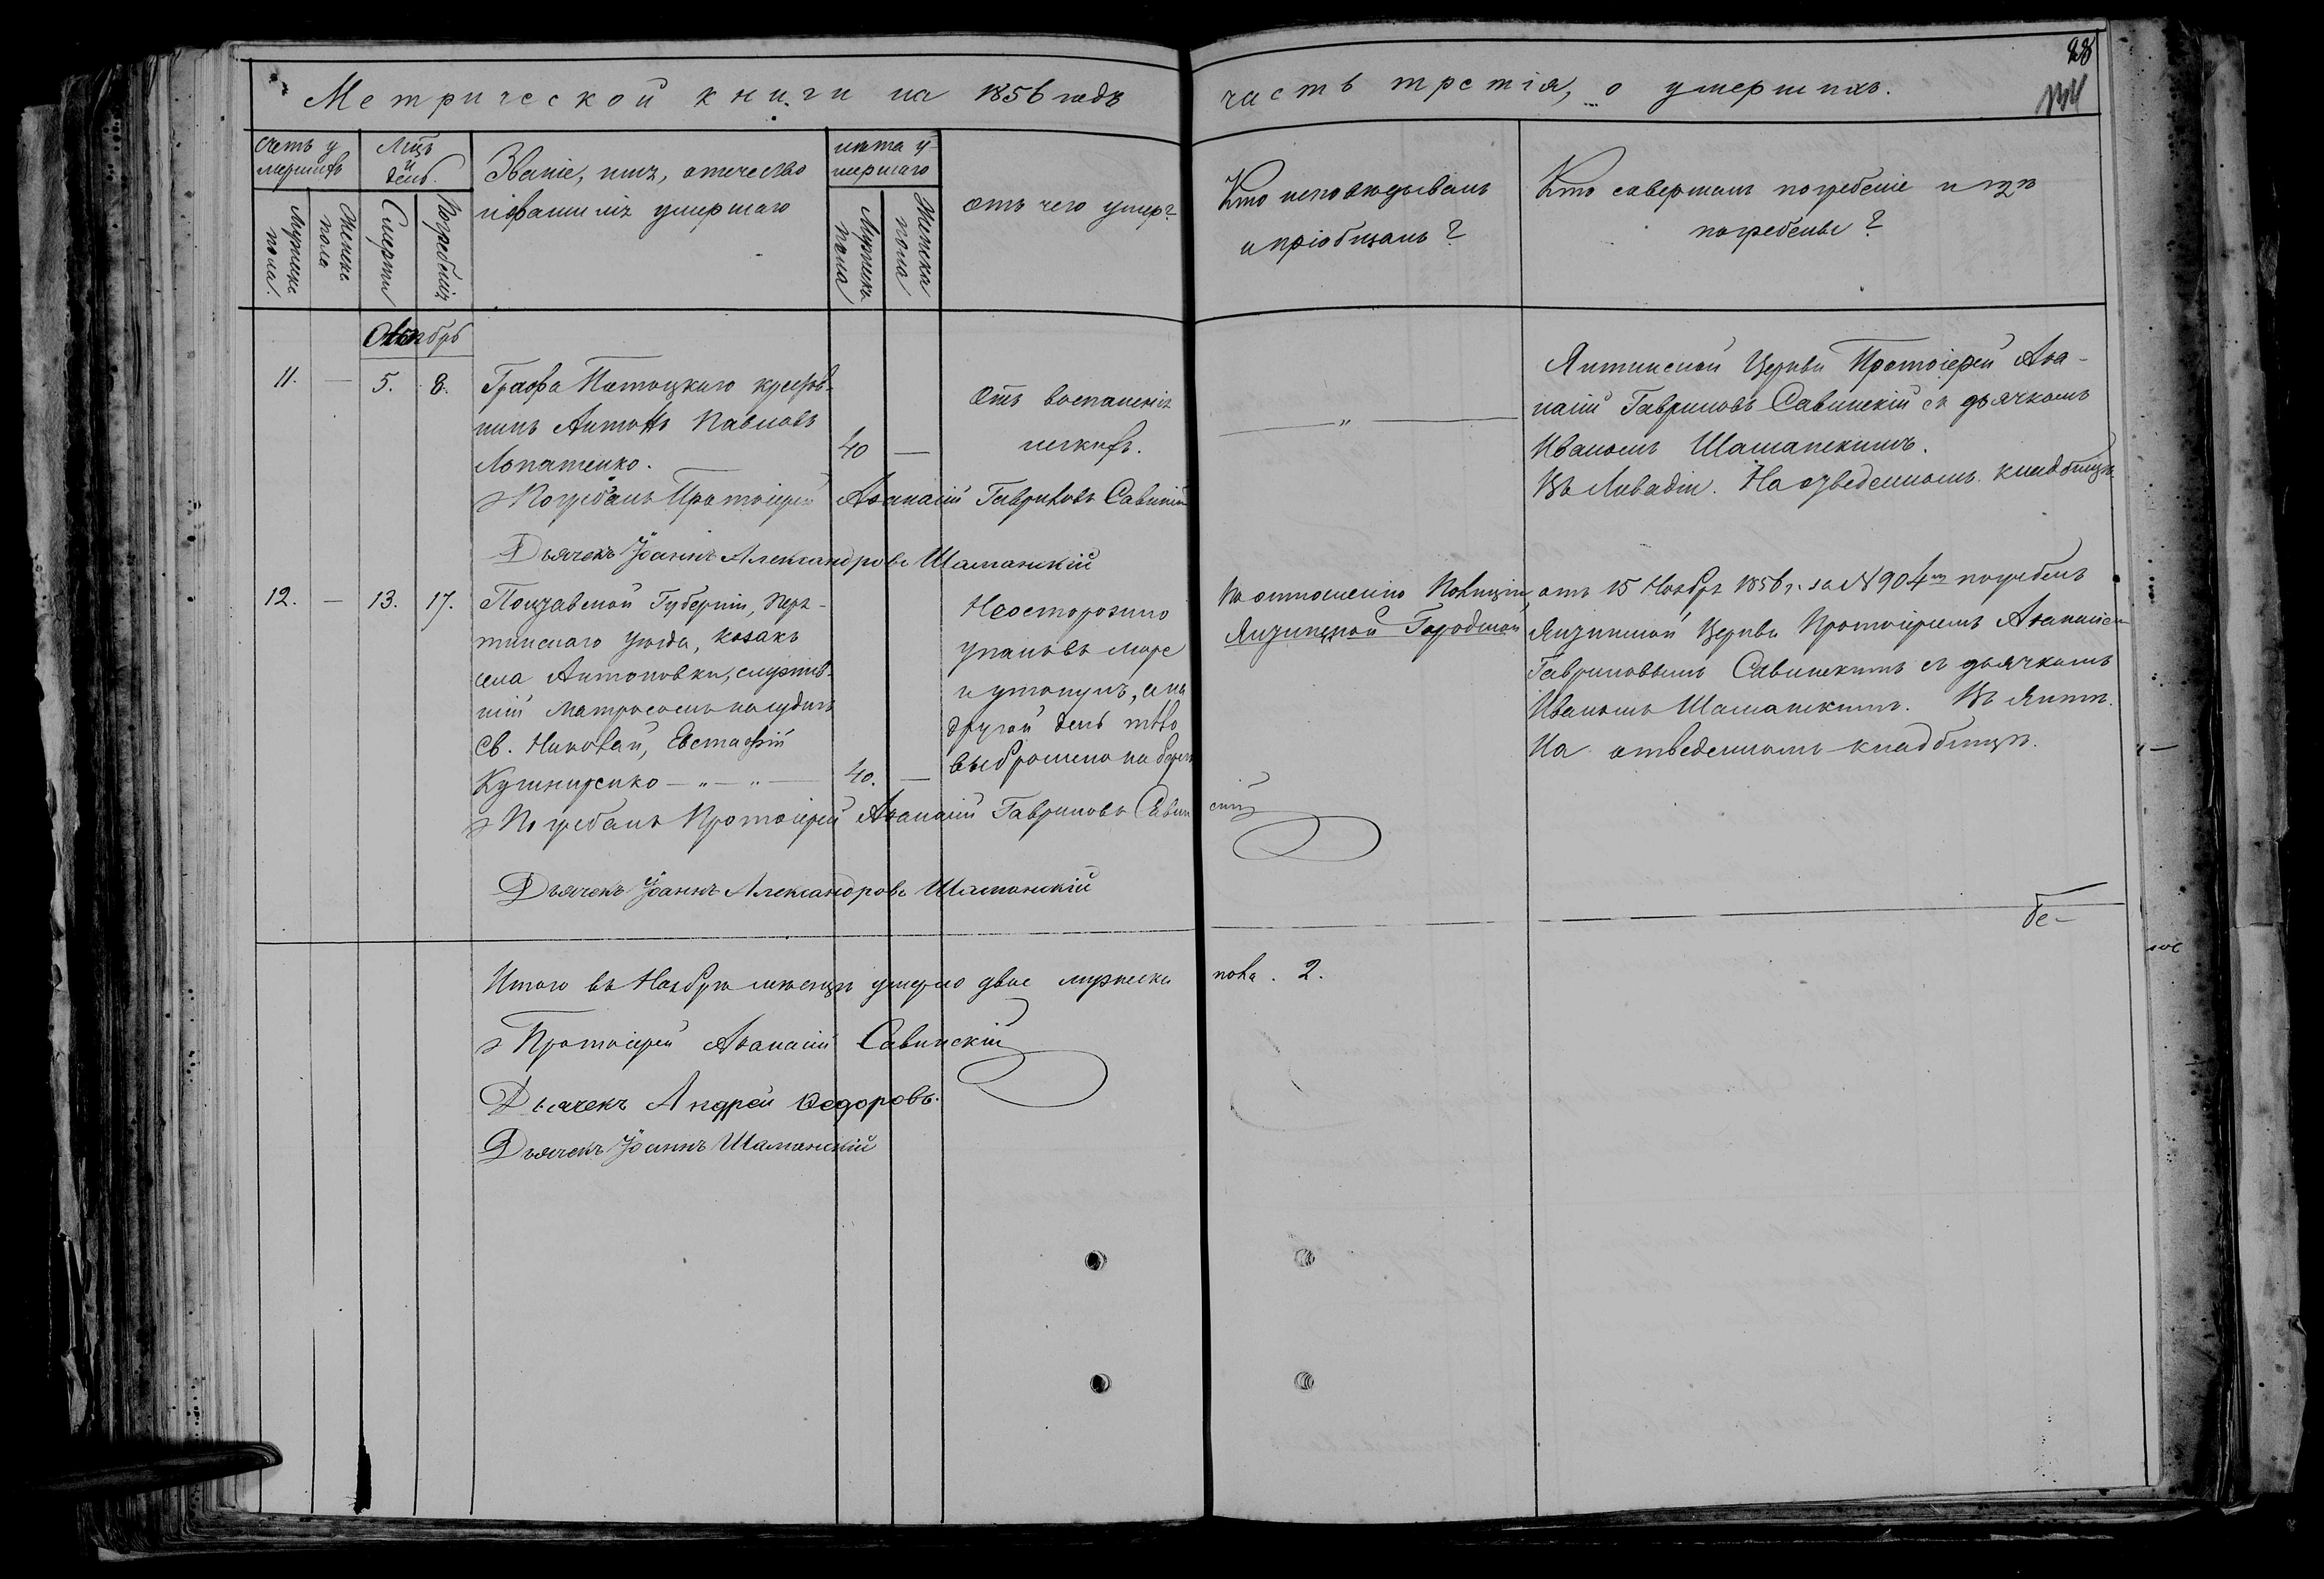 28
Метрической книги на 1856 годъ часть третія, о умершихъ.
Счетъ у
мершихъ
Мѣц
и
день.
Званіе, имя, отчество
и фамилія умершаго
лѣта у-
мершаго
отъ чего умеръ?
Кто исповѣдывалъ
и пріобщалъ?
Кто совершалъ погребеніе и гдѣ
погребены?
Мужеска
пола.
Женска
пола
Смерти
Погребенія
Мужеска
пола
Женска
пола
Ноябрь
11. — 5. 8. Графа Потоцкаго крестья-
нинъ Антонъ Павловъ
Лопатенко.
40 —
Отъ воспаленія
легкихъ.
— „ —
Ялтинской Церкви Протоіерей Аѳа-
насій Гавриловъ Савинскій съ дьячкомъ
Иваномъ Шаманскимъ.
Въ Ливадіи. На отведенномъ кладбищѣ.
Погребалъ Протоіерей Аѳанасій Гавриловъ Савинскій
Дьячекъ Іоаннъ Александровъ Шаманскій
12. — 13. 17. Полтавской Губерніи, Пиря-
тинскаго уѣзда, козакъ
села Антоновки, служив-
шій матросомъ на суднѣ
Св. Николай, Евстафій
Кушниренко — „ — „ —
40. —
Неосторожно
упалъ въ море
и утонулъ, а на
другой день тѣло
выброшено на берегъ
По отношенію Полиціи
Ялтинской Городской
отъ 15 Ноября 1856 г. за № 904 мъ погребенъ
Ялтинской Церкви Протоіереемъ Аѳанасіем
Гавриловымъ Савинскимъ съ дьячкомъ
Иваномъ Шаманскимъ. Въ Ялтѣ.
На отведенномъ кладбищѣ.
Погребалъ Протоіерей Аѳанасій Гавриловъ Савинскій
Дьячекъ Іоаннъ Александровъ Шаманскій
бе-
Итого въ Ноябрѣ мѣсяцѣ умерло двое мужеска пола. 2.
Протоіерей Аѳанасій Савинскій
Дьячекъ Андрей Ѳедоровъ.
Дьячекъ Іоаннъ Шаманскій